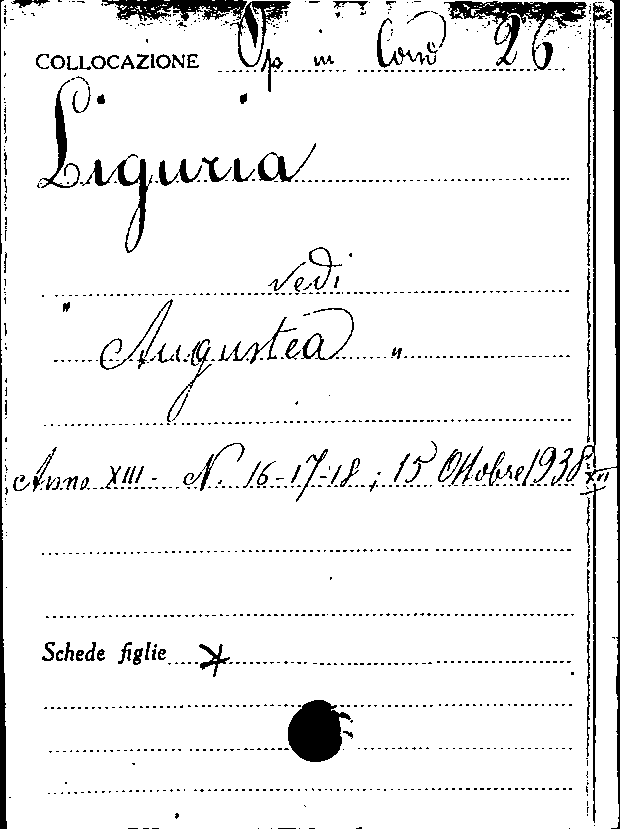 COLLOCAZIONE Op in Cons 26
Liguria
vedi
" Augustea "
Anno XIII - N. 16-17-18 ; 15 Ottobre 1938
Schede figlie